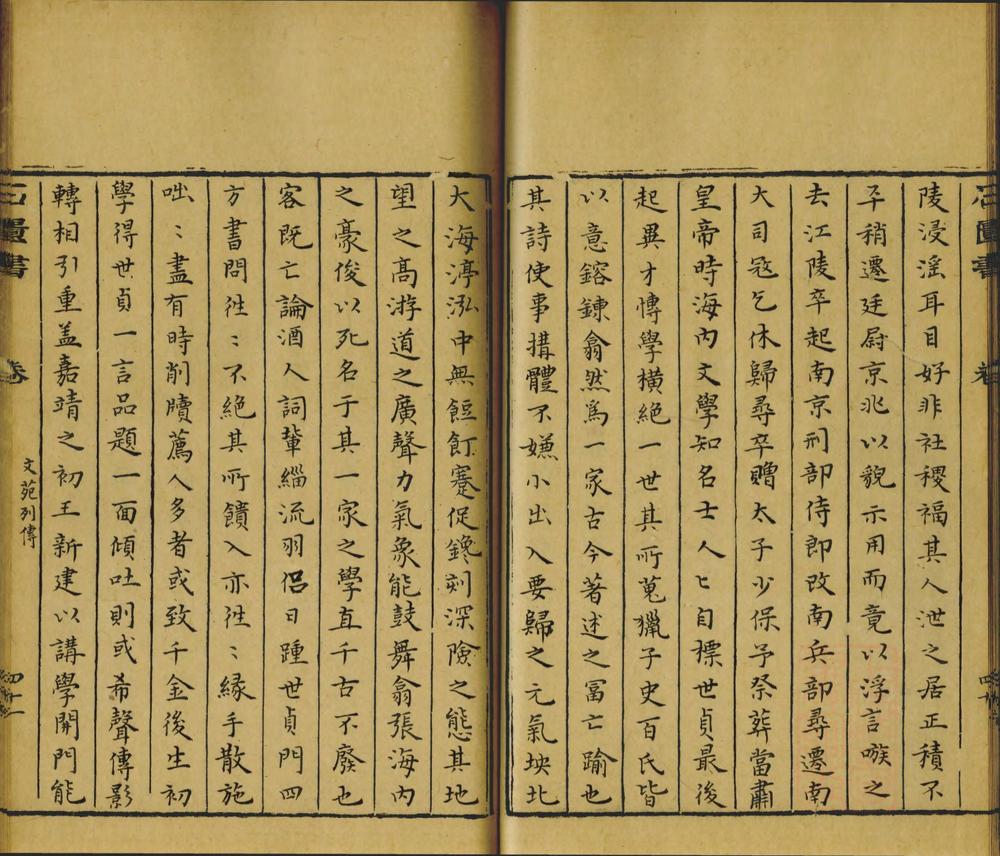 石匱書
卷
陵浸淫耳目好非社稷福其人泄之居正積不
平稍遷廷尉京兆以貌示用而竟以浮言嗾之
去江陵卒起南京刑部侍郎改南兵部尋遷南
大司寇乞休歸尋卒贈太子少保予祭葬當肅
皇帝時海內文學知名士人〻自標世貞最後
起異才愽學橫絕一世其所蒐獵子史百氏皆
以意鎔鍊翕然爲一家古今著述之冨亡踰也
其詩使事措體不嫌小出入要歸之元氣坱北
大海渟泓中無餖飣蹇促鑱刻深險之態其地
望之高游道之廣聲力氣象能鼓舞翕張海內
之豪俊以死名于其一家之學直千古不廢也
客既亡論酒人詞輩緇流羽侶日踵世貞門四
方書問徃〻不絕其所饋入亦徃〻緣手散施
咄〻盡有時削牘薦人多者或致千金後生初
學得世貞一言品題一面傾吐則或希聲傳影
轉相引重盖嘉靖之初王新建以講學開門能
石匱書
卷
文苑列傳
四十一